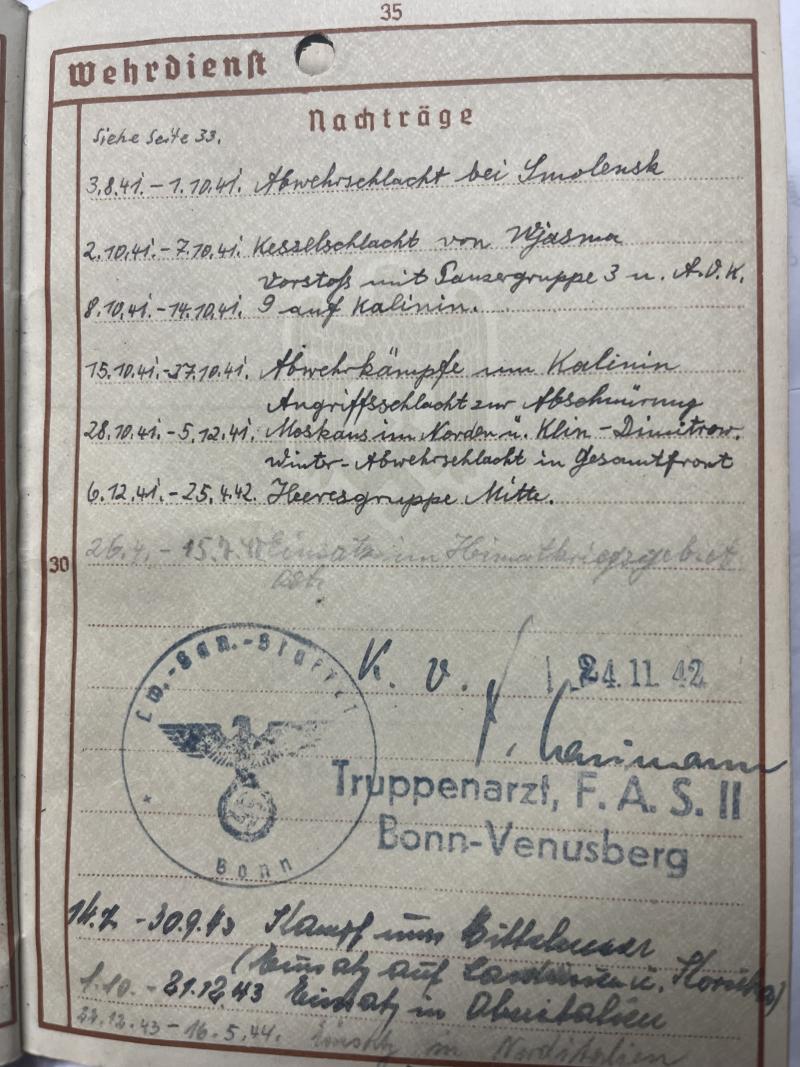 35
Wehrdienst
Nachträge
Siehe Seite 33.
3.8.41. - 1.10.41. Abwehrschlacht bei Smolensk
2.10.41. - 7.10.41. Kesselschlacht von Wjasma
Vorstoß mit Panzergruppe 3 u. A.O.K.
8.10.41. - 14.10.41. 9 auf Kalinin.
15.10.41. - 27.10.41. Abwehrkämpfe um Kalinin
Angriffsschlacht zur Abschnürung
28.10.41. - 5.12.41. Moskaus im Norden u. Klin - Dimitrow.
Winter-Abwehrschlacht in Gesamtfront
6.12.41. - 25.4.42. Heeresgruppe Mitte.
26.4. - 15.7. Einsatz im Heimatkriegsgebiet
30
Lw.-San.-Staffel
Bonn
K. v. 24.11.42
Truppenarzt, F. A. S. II
Bonn-Venusberg
14.7 - 30.9.43 Kampf ums Mittelmeer
(Einsatz auf Sardinien u. Korsika)
1.10. - 21.12.43 Einsatz in Oberitalien
22.12.43 - 16.5.44. Einsatz in Norditalien